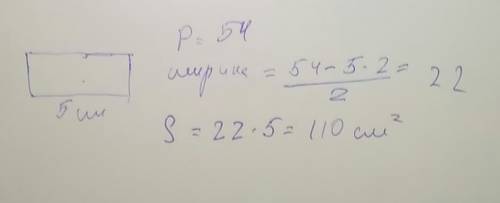 P = 54
ширина = 54 - 5 · 2 / 2 = 22
5 см
S = 22 · 5 = 110 см²